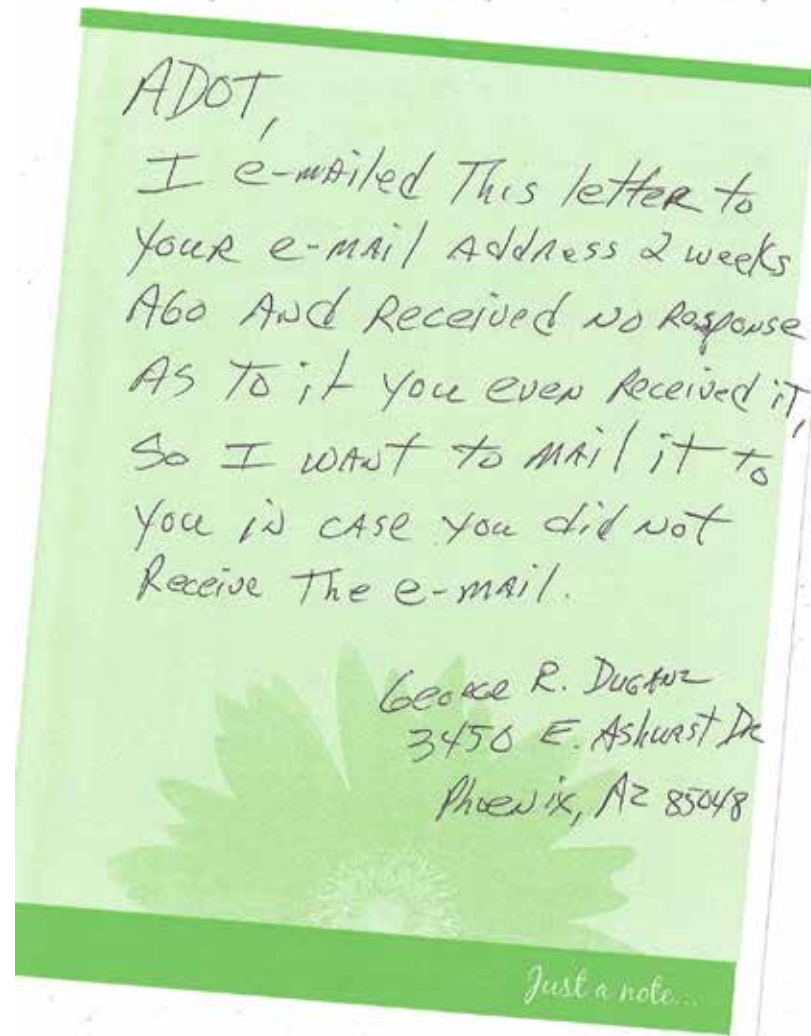 ADOT,
I e-mailed This letter to
Your e-mail Address 2 weeks
Ago And Received no Response
As To if You even Received iT,
So I want to mail it To
You in case You did not
Receive The e-mail.
George R. Duganz
3450 E. Ashurst Dr
Phoenix, AZ 85048
Just a note...